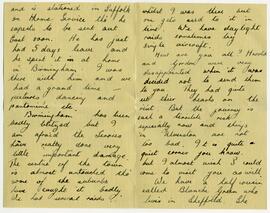 and is stationed in Suffolk
on Home Service tho' he
expects to be sent out
East soon. He has just
had 5 days leave and
he spent it at home
in Birmingham. I was
there with them and we
had a grand time –
victuals, dancing and
pantomime etc.
Birmingham has been
badly blitzed but I
am afraid the Service
have really done very
little important damage.
The centre of the town
is almost untouched tho'
some of the suburbs
have caught it badly.
We had several raids
whilst I was there but
one gets used to it in
time. We have daylight
raids sometimes by
single aircraft.
How are you all? Harold
and Gordon were very
disappointed when it was
decided not to send them
to you. They had quite
set their hearts on the
visit. But the journey is
such a terrible risk
especially now and things
in Ulverston are not
too bad. It is quite a
quiet corner you know
but I almost wish I could
come to visit you as well.
We have a half cousin
called Blanche Green who
lives in Sheffield. She